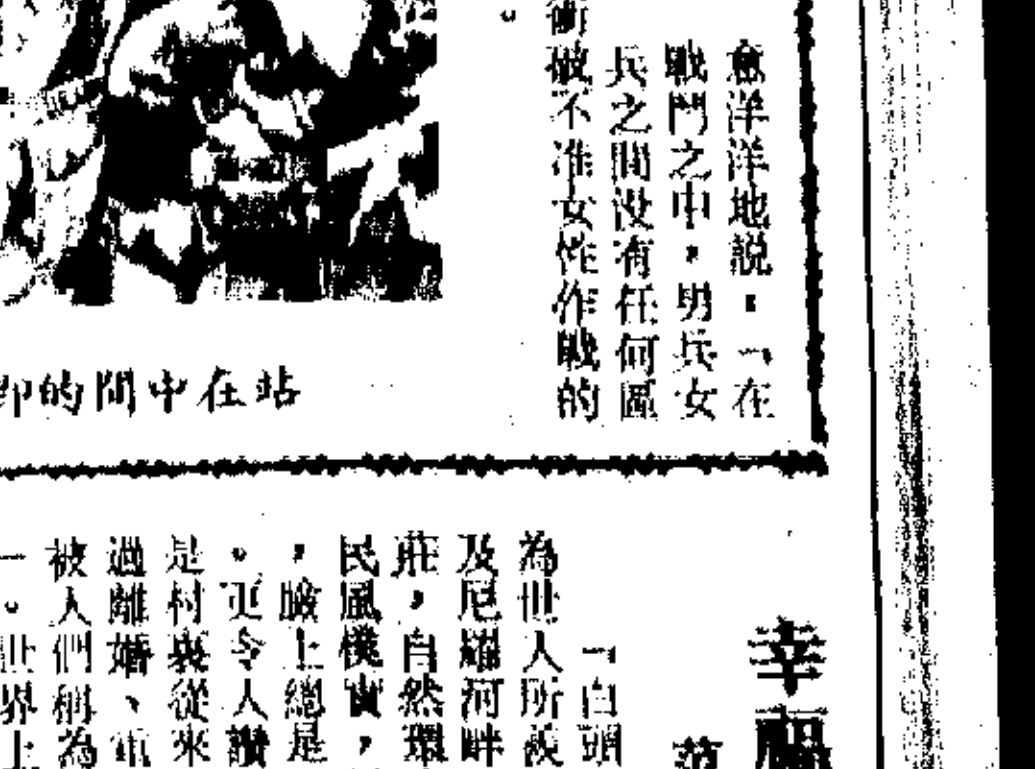 意洋洋地説：「在
戰鬥之中，男兵女
兵之間没有任何區
衝破不准女性作戰的
。
站在中間的即
幸福
范
「白頭
為世人所羨
及尼羅河畔
莊，自然環
民風樸實，
，臉上總是
。更令人讚
是村裏從來
過離婚、重
被人們稱為
一。世界上